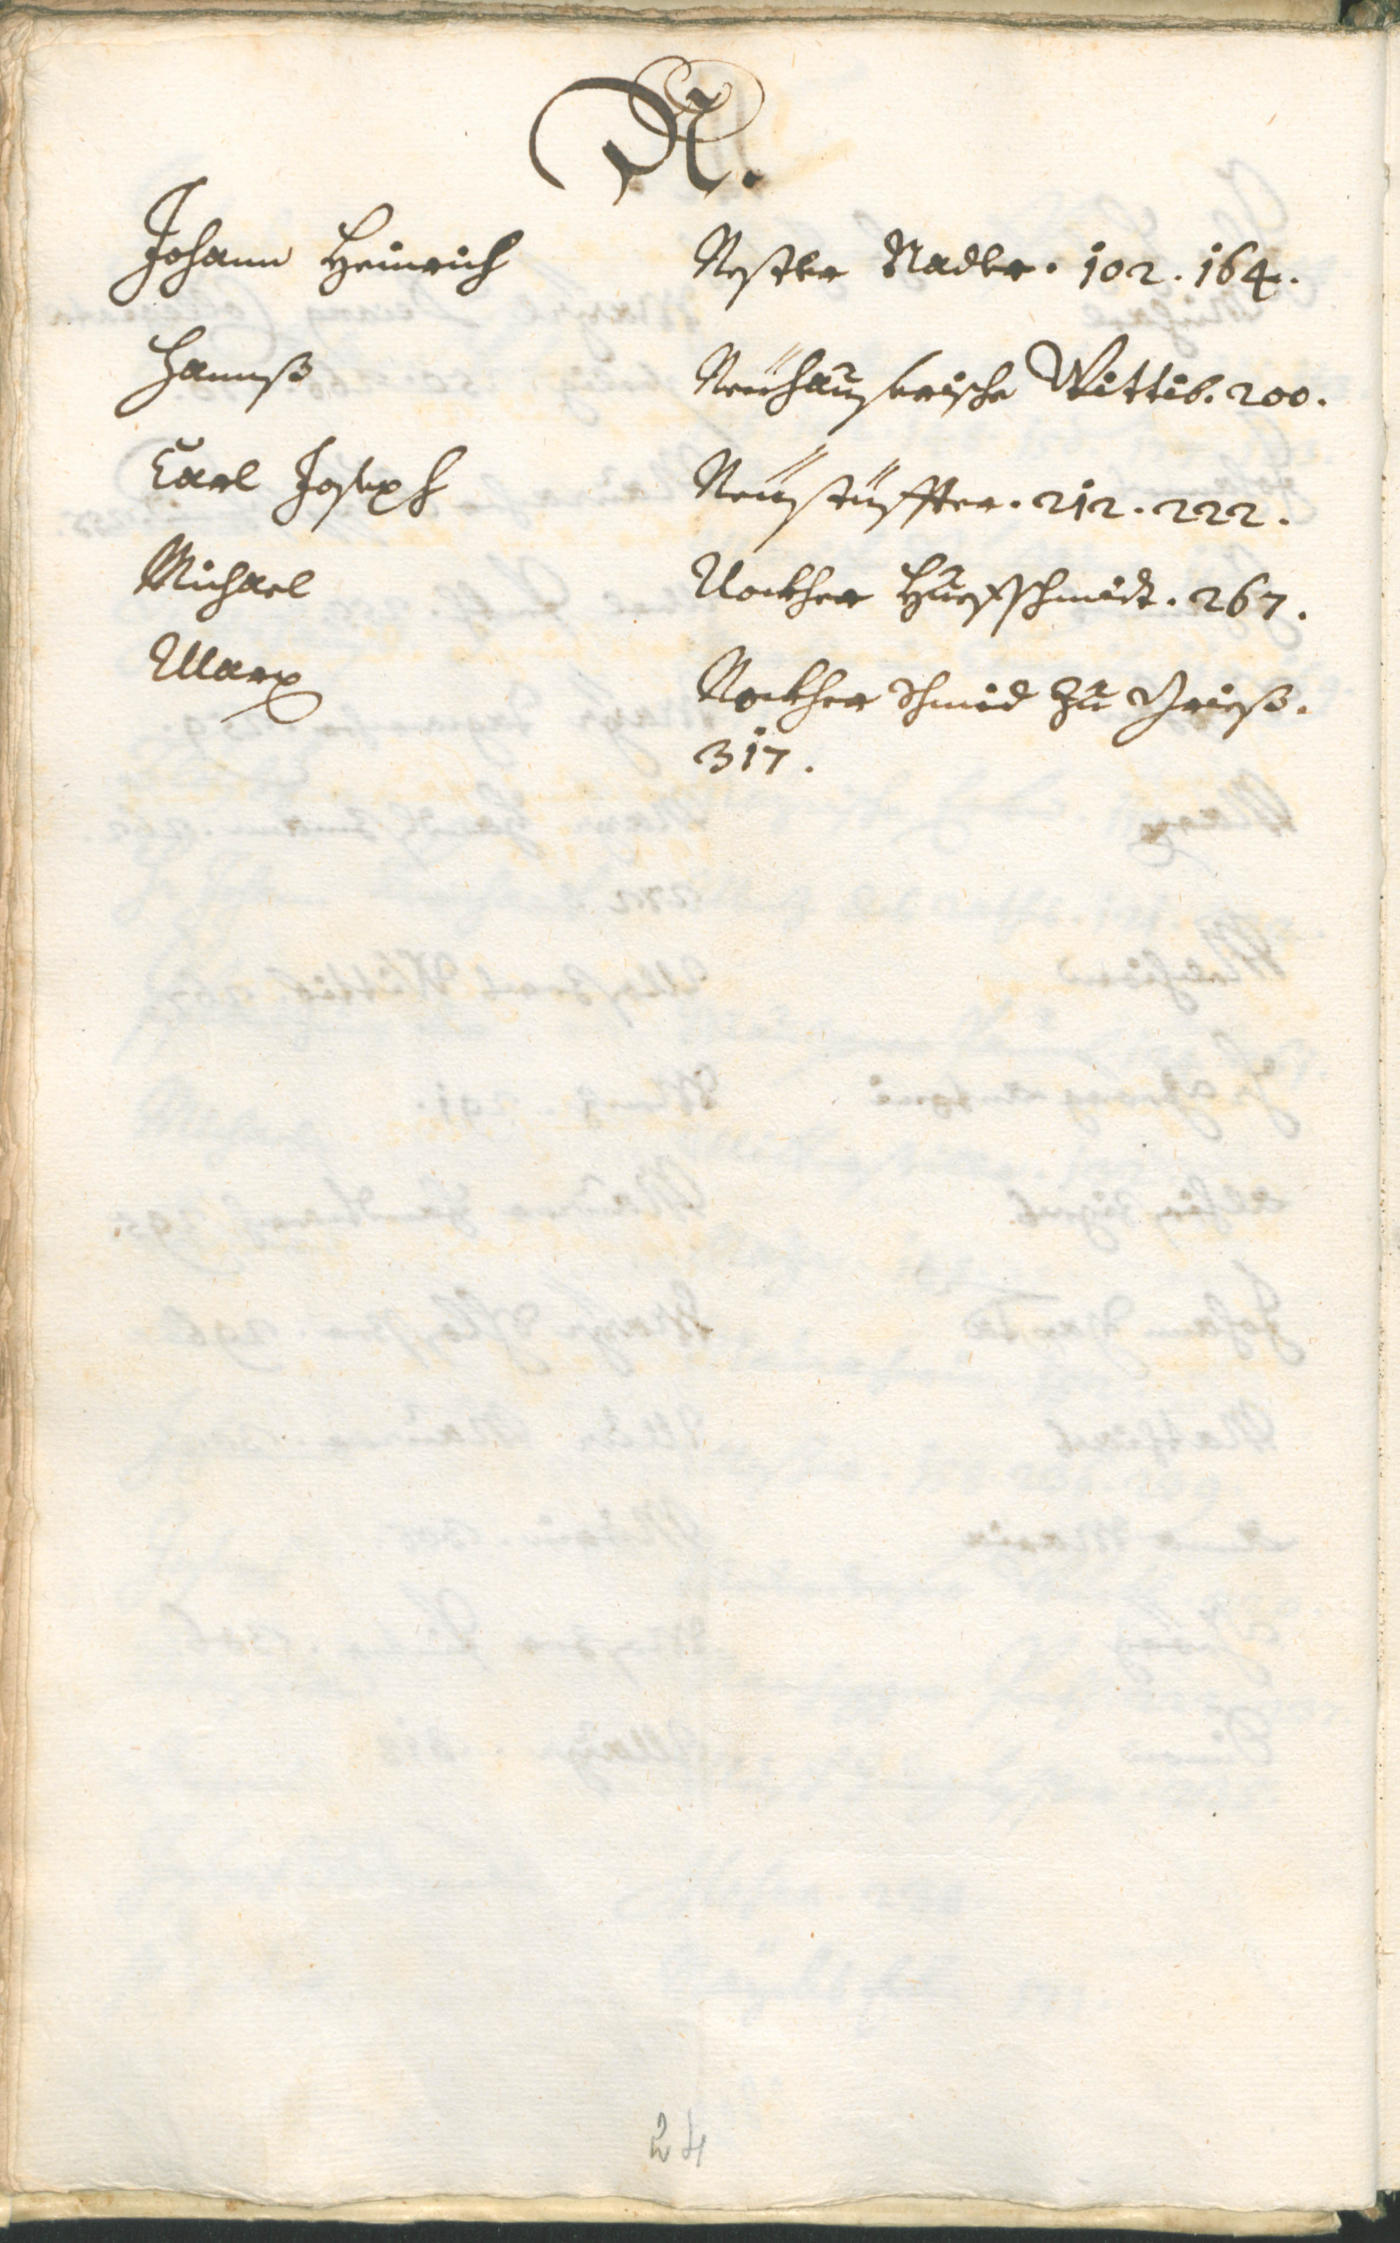 N.
Johann Heinrich Nestler Nadler. 102. 164.
Hannß Neühauserische Wittib. 200.
Carl Joseph Neüstüffter. 212. 222.
Michael Nockher Hueffschmidt. 267.
Marx Nockher Schmid zu Grieß.
317.
24